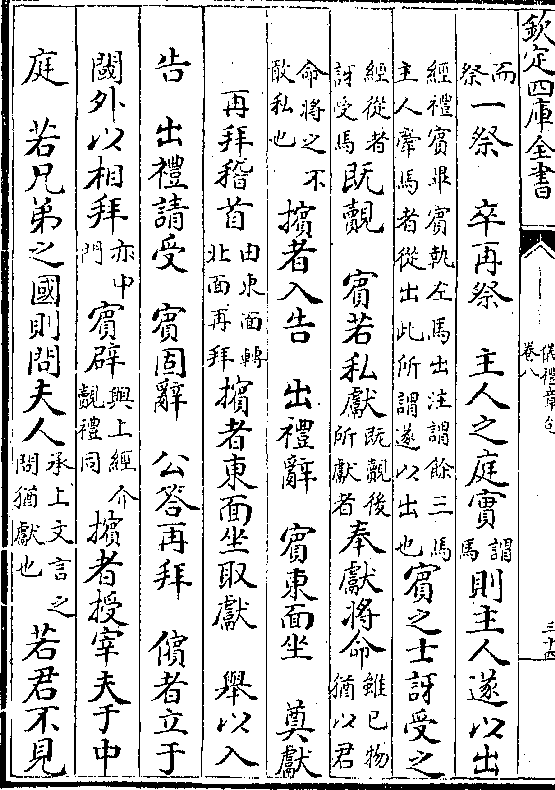 欽定四庫全書
儀禮章句
卷八
三十四
而祭一祭　卒再祭　主人之庭實謂馬則主人遂以出
經禮賓畢賓執左馬出注謂餘三馬主人牽馬者從出此所謂遂以出也賓之士訝受之
經從者訝受馬既覿　賓若私獻既覿後所獻者奉獻將命雖己物猶以君
命將之不敢私也　擯者入告　出禮辭　賓東面坐　奠獻
再拜稽首由東面轉北面再拜擯者東面坐取獻　舉以入
告　出禮請受　賓固辭　公答再拜　儐者立于
閾外以相拜亦中門賓辟與上經介覿禮同　擯者授宰夫于中
庭　若兄弟之國則問夫人承上文言之問猶獻也　若君不見